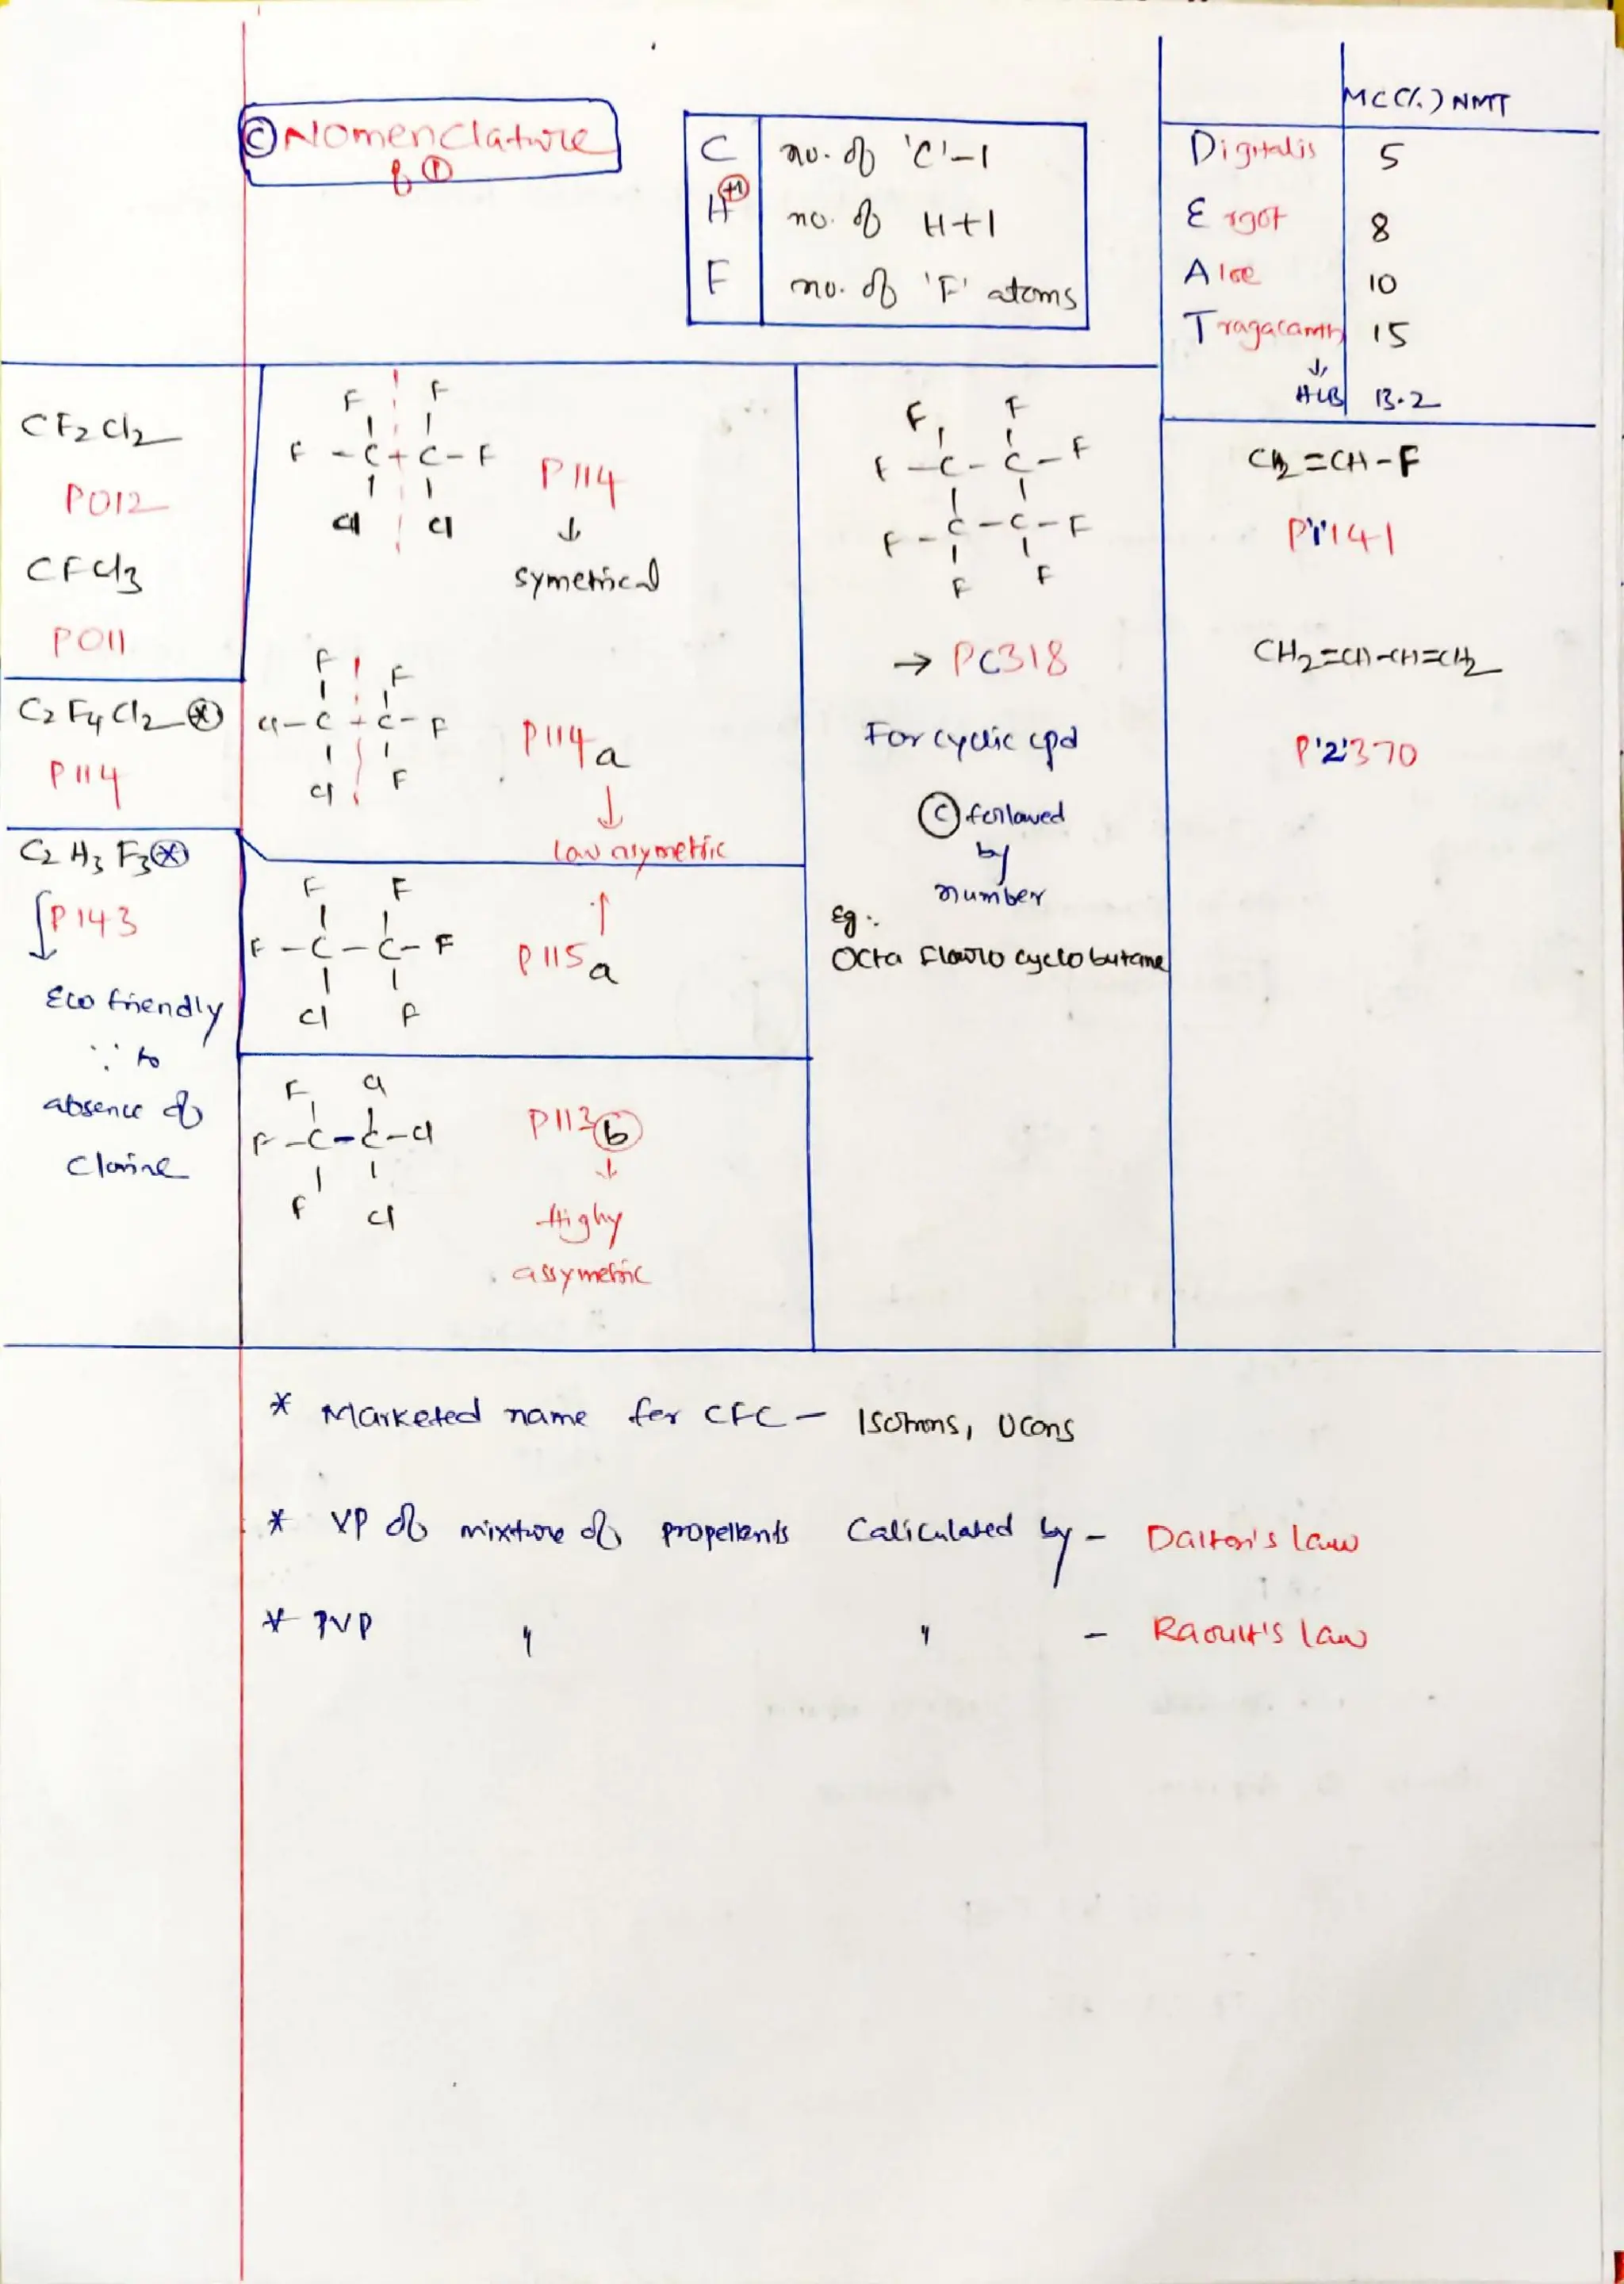 © Nomenclature
of ①
C no. of 'C'-1
H+1 no. of H+1
F no. of 'F' atoms
MC(%) NMT
Digitalis 5
Ergot 8
Aloe 10
Tragacanth 15
↓
HLB 13.2
CF2Cl2
P012
CFCl3
P011
C2F4Cl2 *
P114
C2H3F3 *
P143
Eco friendly
∵ to
absence of
Clorine
F F
F - C + C - F
Cl Cl
P114
↓
symetrical
F F
Cl - C + C - F
Cl F
P114a
↓
Low asymetric
↑
F F
F - C - C - F
Cl F
P115a
F Cl
F - C - C - Cl
F Cl
P113b
↓
Highy
assymetric
F F
F - C - C - F
F - C - C - F
F F
→ PC318
For cyclic cpd
© followed
by
number
Eg:
Octa flouro cyclobutane
CH2=CH-F
P'1'141
CH2=CH-CH=CH2
P'2'370
* Marketed name for CFC - Isotrons, Ucons
* VP of mixture of propellents Caliculated by - Dalton's law
* PVP " " - Raoult's law